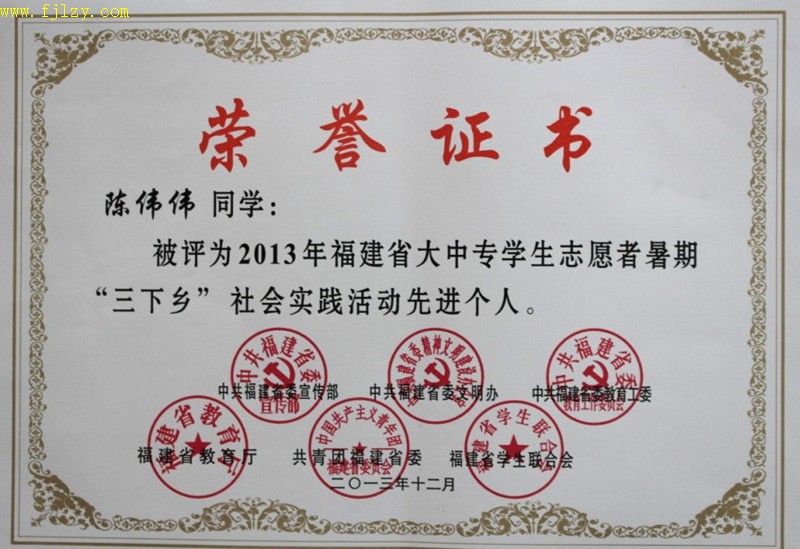 www.fjlzy.com
荣誉证书
陈伟伟 同学：
被评为2013年福建省大中专学生志愿者暑期
“三下乡”社会实践活动先进个人。
中共福建省委
宣传部
中共福建省委
教育工作委员会
中共福建省委宣传部 中共福建省委文明办 中共福建省委教育工委
福建省教育厅
中国共产主义青年团
福建省委员会
福建省学生联合会
福建省教育厅 共青团福建省委 福建省学生联合会
二〇一三年十二月